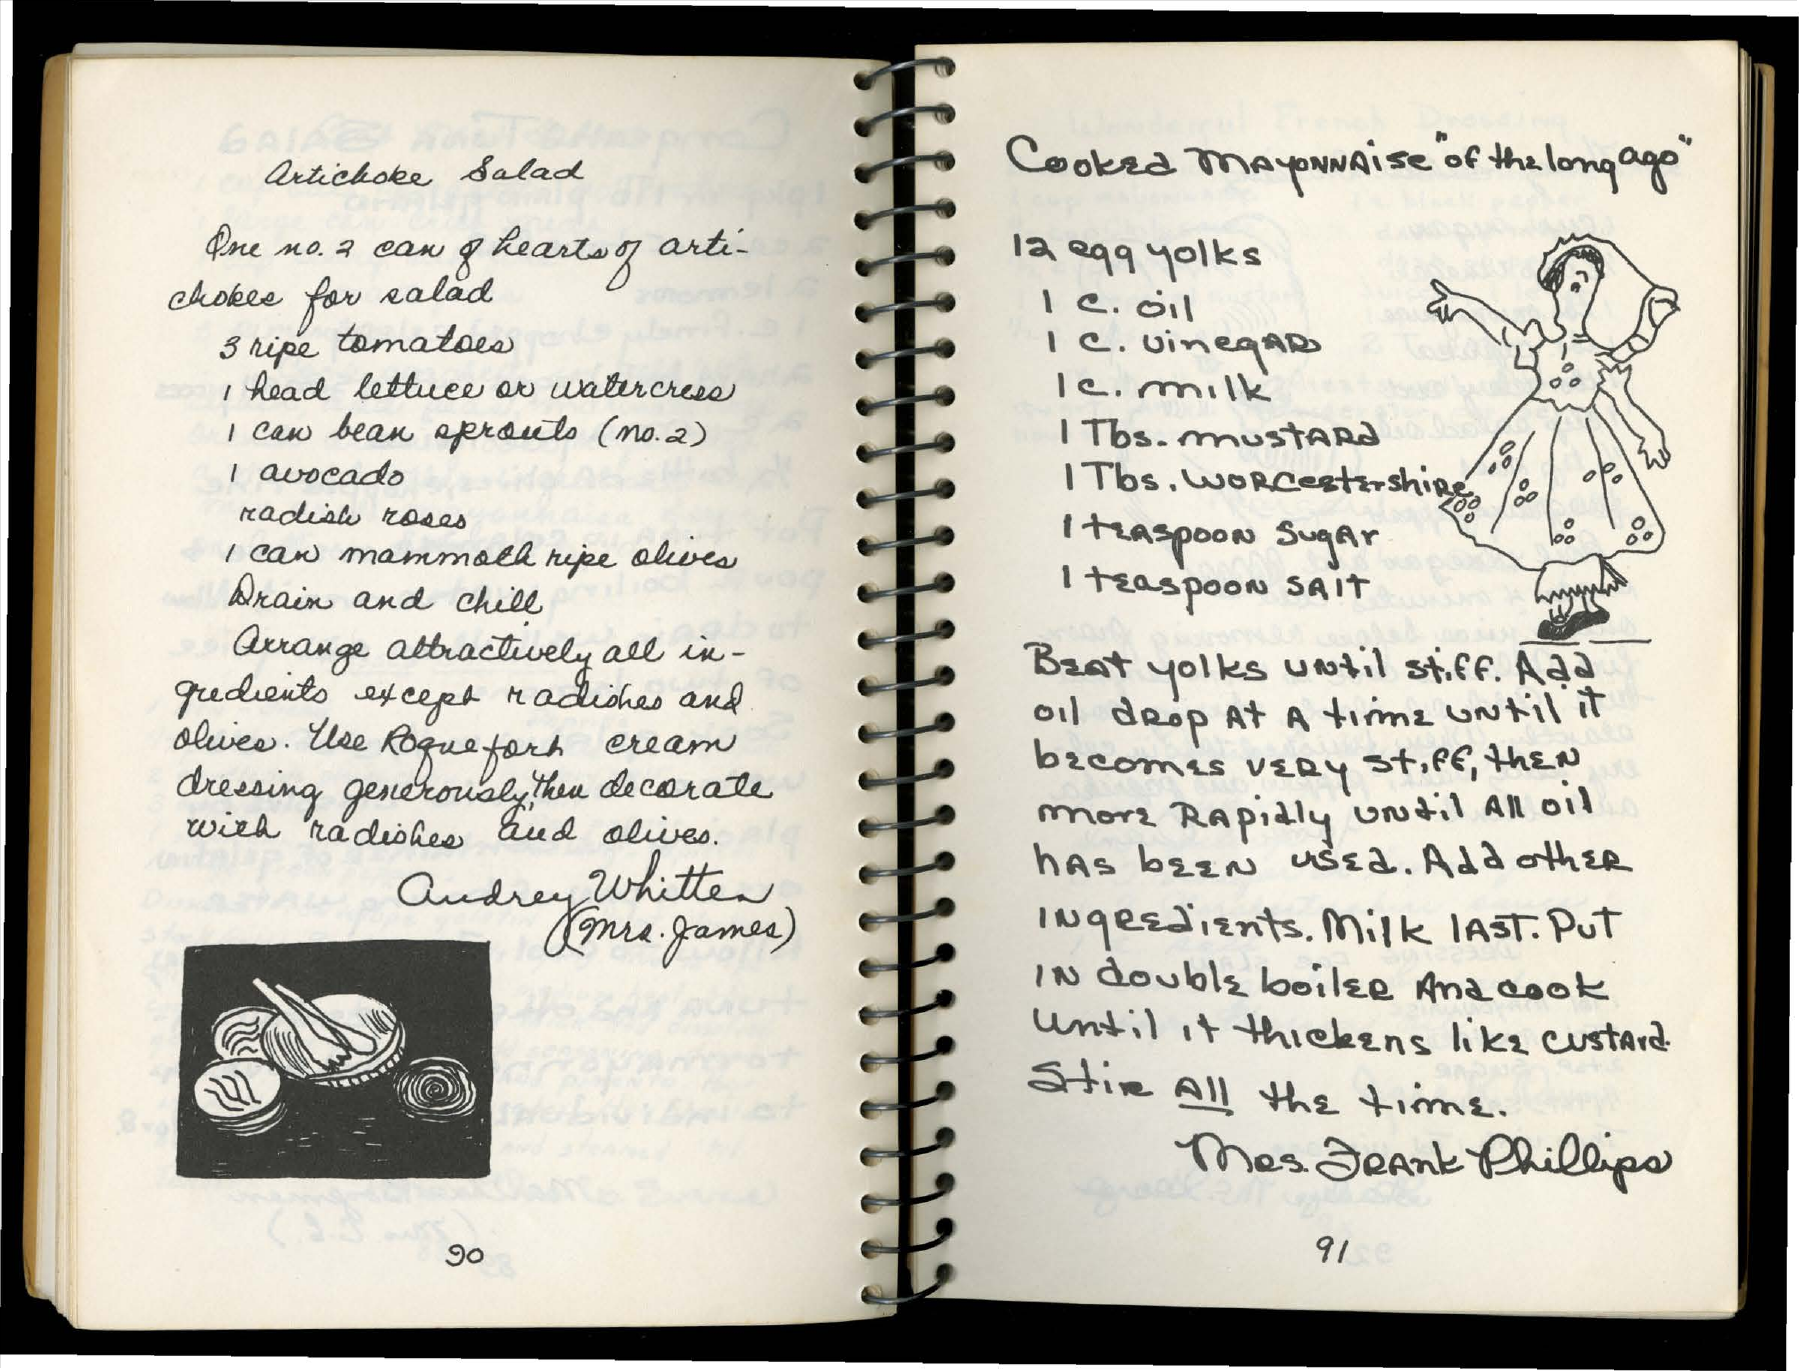 Artichoke Salad
One no. 2 can of hearts of arti-
chokes for salad
3 ripe tomatoes
1 head lettuce or watercress
1 can bean sprouts (no. 2)
1 avocado
radish roses
1 can mammoth ripe olives
Drain and chill
Arrange attractively all in-
gredients except radishes and
olives. Use Roquefort cream
dressing generously, then decorate
with radishes and olives.
Audrey Whitten
(Mrs. James)
90
Cooked Mayonnaise "of the long ago"
12 egg yolks
1 c. oil
1 c. vinegar
1 c. milk
1 Tbs. mustard
1 Tbs. Worcestershire
1 teaspoon sugar
1 teaspoon salt
Beat yolks until stiff. Add
oil drop at a time until it
becomes very stiff, then
more rapidly until all oil
has been used. Add other
ingredients. Milk last. Put
in double boiler and cook
until it thickens like custard.
Stir all the time.
Mrs. Frank Phillips
91